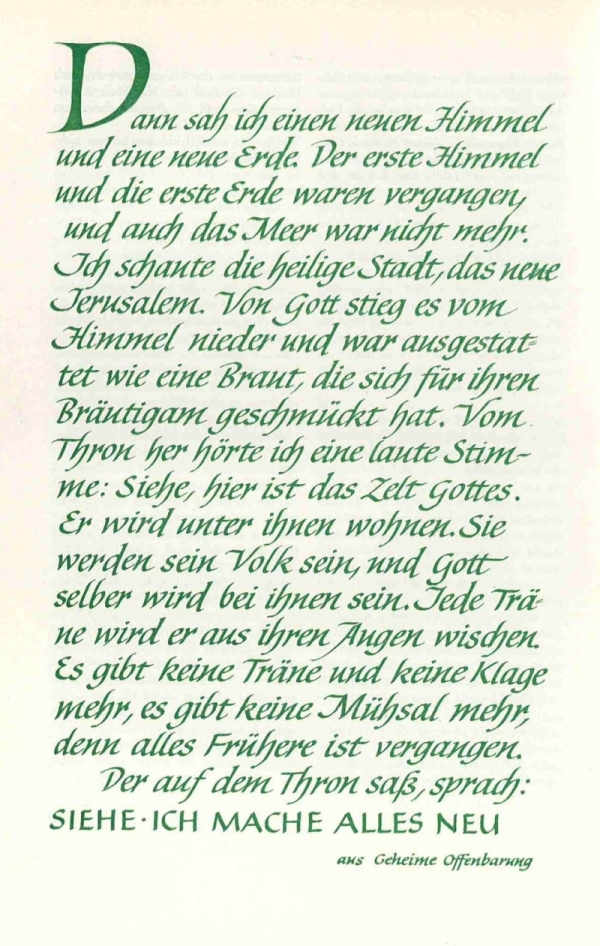 Dann sah ich einen neuen Himmel
und eine neue Erde. Der erste Himmel
und die erste Erde waren vergangen,
und auch das Meer war nicht mehr.
Ich schaute die heilige Stadt, das neue
Jerusalem. Von Gott stieg es vom
Himmel nieder und war ausgestat=
tet wie eine Braut, die sich für ihren
Bräutigam geschmückt hat. Vom
Thron her hörte ich eine laute Stim-
me: Siehe, hier ist das Zelt Gottes.
Er wird unter ihnen wohnen. Sie
werden sein Volk sein, und Gott
selber wird bei ihnen sein. Jede Trä-
ne wird er aus ihren Augen wischen.
Es gibt keine Träne und keine Klage
mehr, es gibt keine Mühsal mehr,
denn alles Frühere ist vergangen.
Der auf dem Thron saß, sprach:
SIEHE · ICH MACHE ALLES NEU
aus Geheime Offenbarung